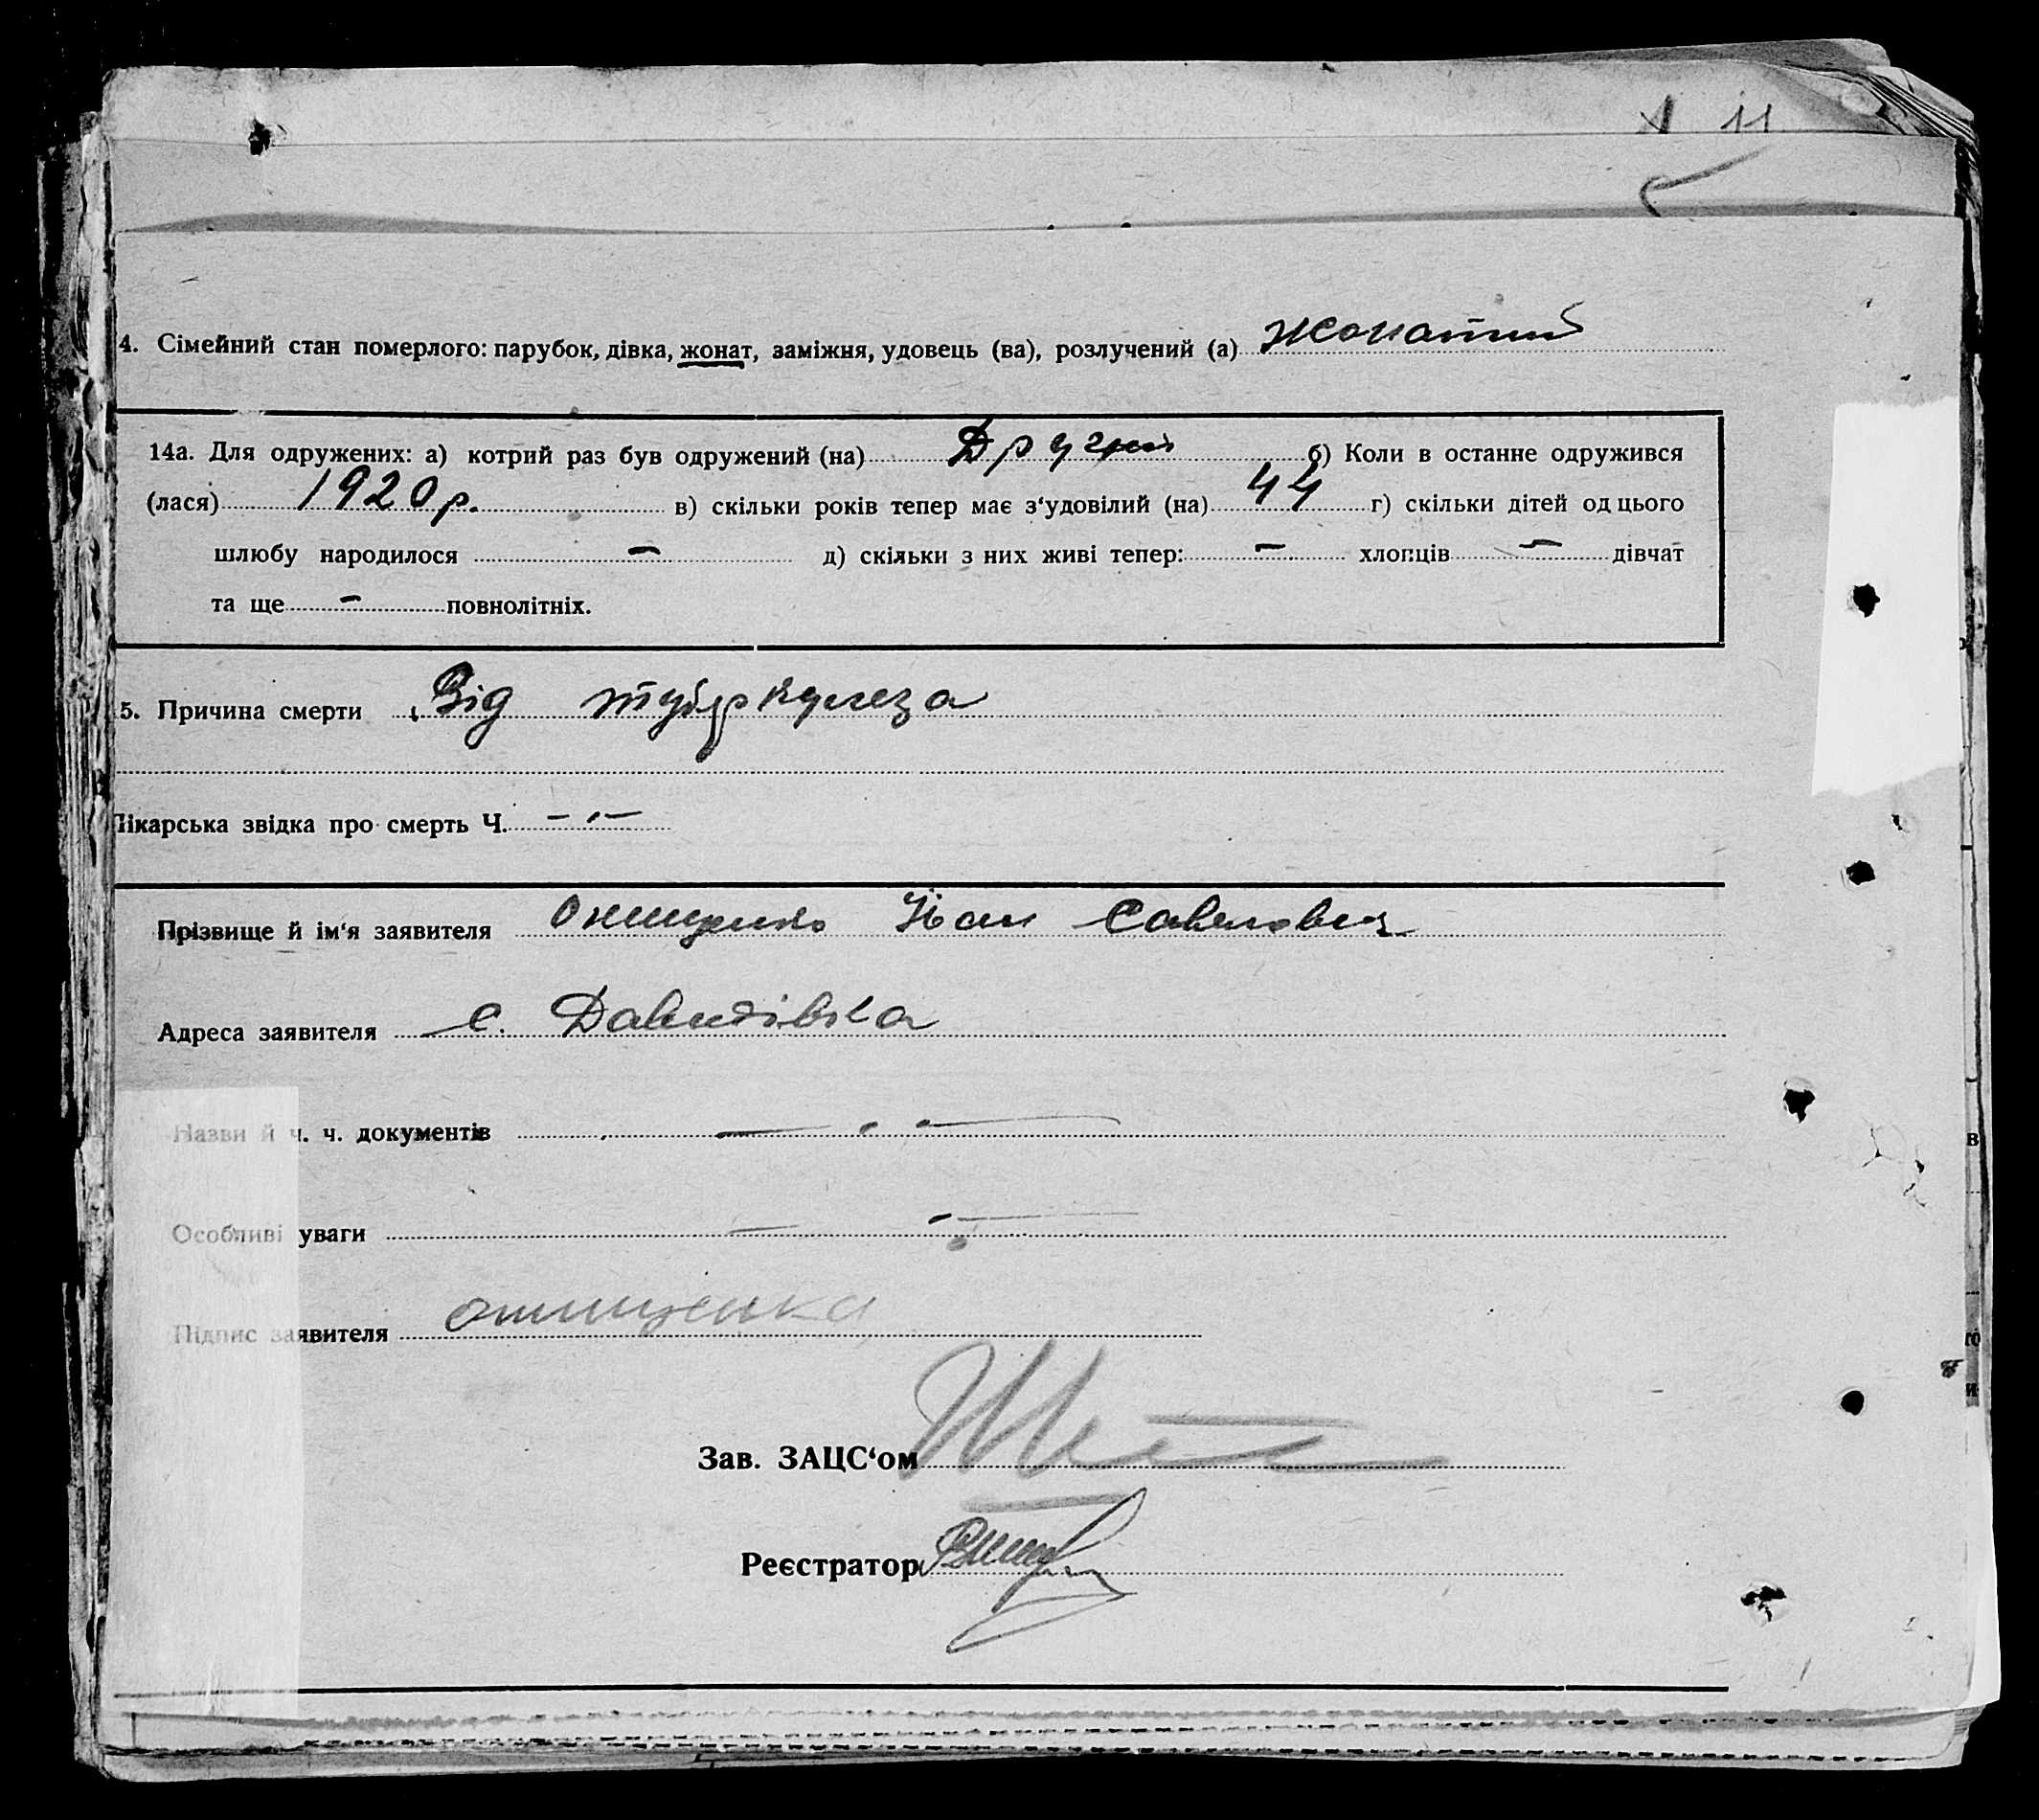 11
4. Сімейний стан померлого: парубок, дівка, жонат, заміжня, удовець (ва), розлучений (а) Жонатий
14а. Для одружених: а) котрий раз був одружений (на) Другий б) Коли в останнє одружився
(лася) 1920 р. в) скільки років тепер має з‘удовілий (на) 44 г) скільки дітей од цього
шлюбу народилося — д) скільки з них живі тепер: — хлопців — дівчат
та ще - повнолітніх.
5. Причина смерти Від туберкулеза
Лікарська звідка про смерть Ч. — . —
Прізвище й ім‘я заявителя Онищенко Іван Савелович
Адреса заявителя с. Давидівка
Назви й ч. ч. документів — . —
Особливі уваги — . —
Підпис заявителя онищенко
Зав. ЗАЦС‘ом
Реєстратор